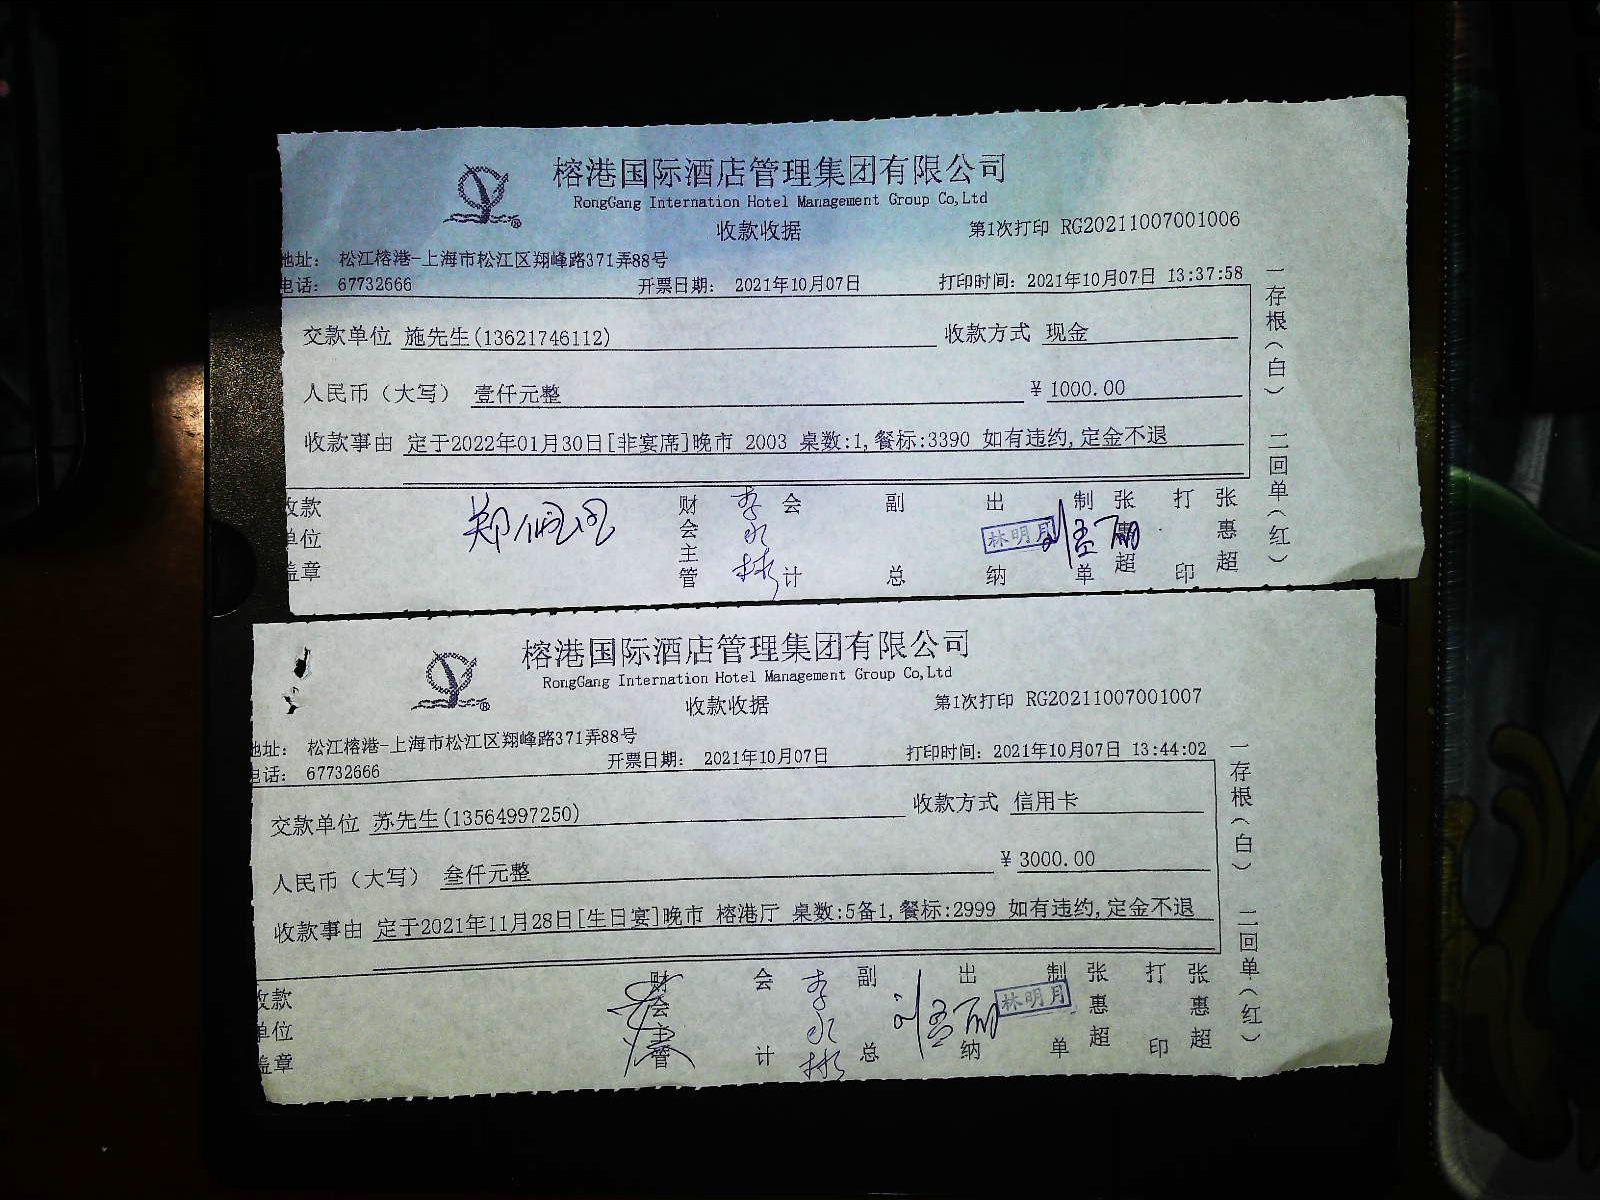 榕港国际酒店管理集团有限公司
RongGang Internation Hotel Management Group Co,Ltd
收款收据
第1次打印 RG20211007001006
地址： 松江榕港-上海市松江区翔峰路371弄88号
电话： 67732666
开票日期： 2021年10月07日
打印时间: 2021年10月07日 13:37:58
交款单位 施先生(13621746112)
收款方式 现金
人民币（大写） 壹仟元整
¥ 1000.00
收款事由 定于2022年01月30日[非宴席]晚市 2003 桌数:1,餐标:3390 如有违约,定金不退
一存根（白） 二回单（红）
收款单位盖章
财会主管
李永彬
会计
副总
出纳
林明月
制单
张惠超
打印
张惠超
榕港国际酒店管理集团有限公司
RongGang Internation Hotel Management Group Co,Ltd
收款收据
第1次打印 RG20211007001007
地址： 松江榕港-上海市松江区翔峰路371弄88号
电话： 67732666
开票日期： 2021年10月07日
打印时间: 2021年10月07日 13:44:02
交款单位 苏先生(13564997250)
收款方式 信用卡
人民币（大写） 叁仟元整
¥ 3000.00
收款事由 定于2021年11月28日[生日宴]晚市 榕港厅 桌数:5备1,餐标:2999 如有违约,定金不退
一存根（白） 二回单（红）
收款单位盖章
财会主管
会计
李永彬
副总
出纳
林明月
制单
张惠超
打印
张惠超